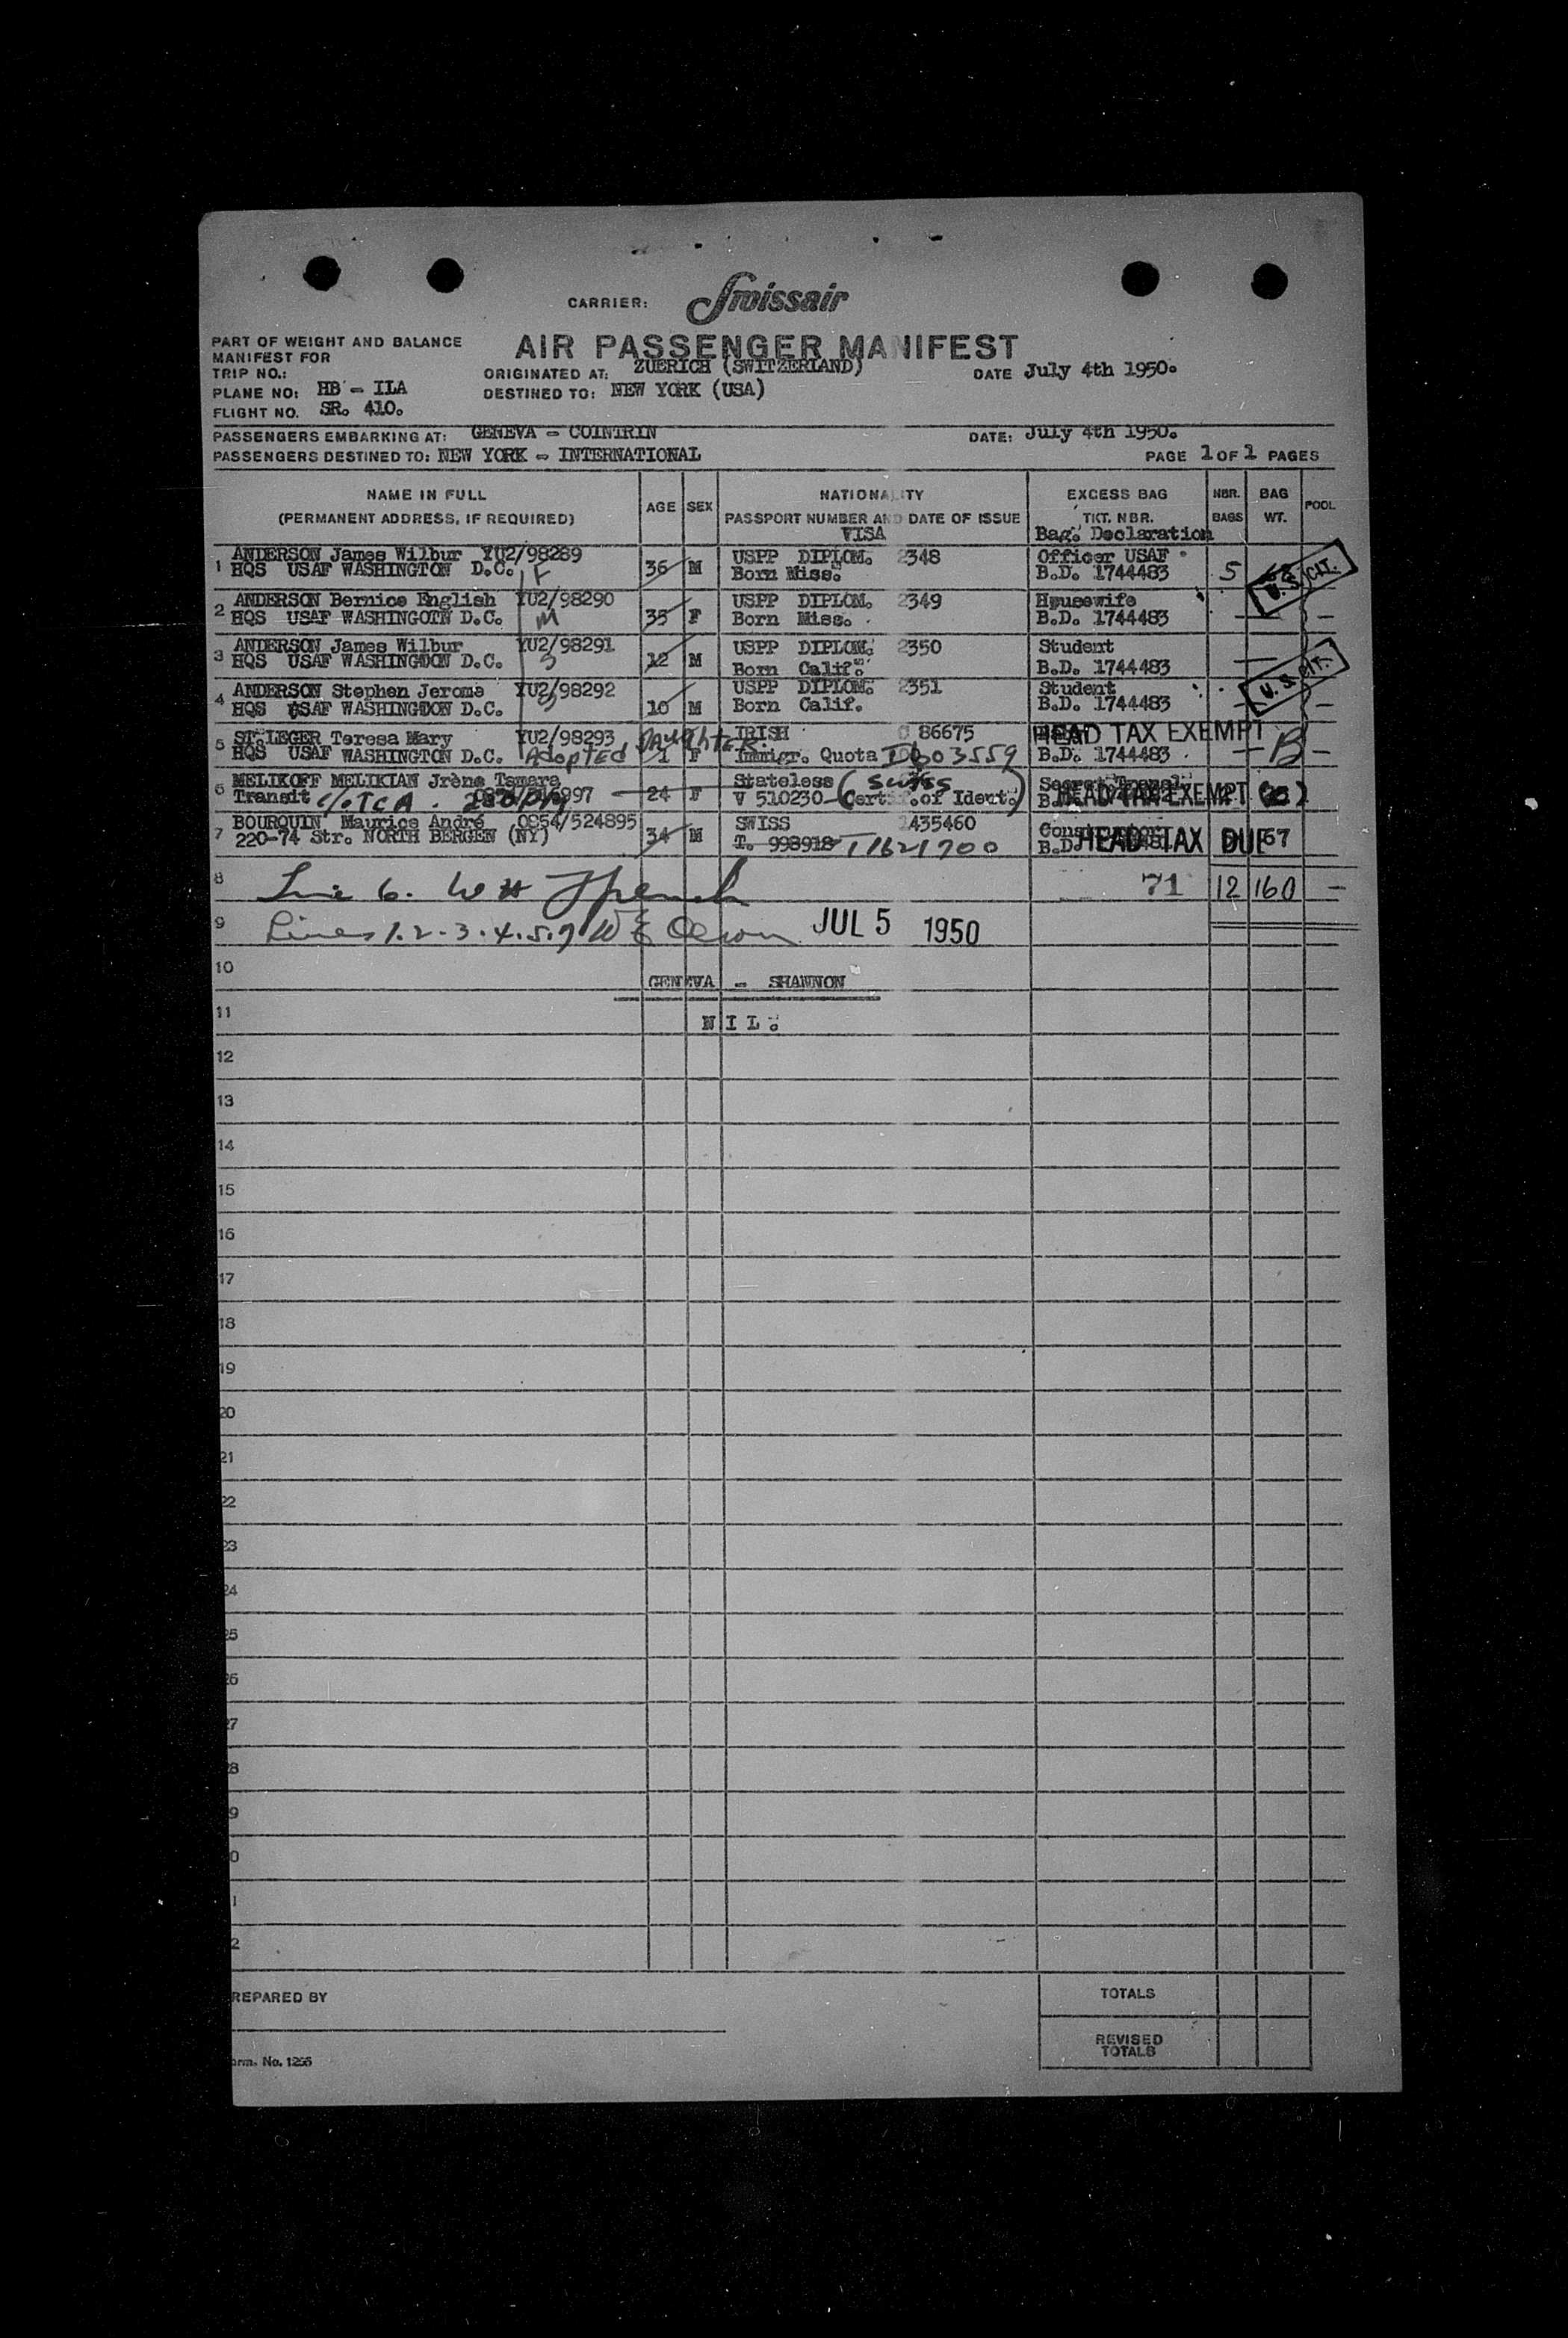 CARRIER: Swissair
AIR PASSENGER MANIFEST
PART OF WEIGHT AND BALANCE
MANIFEST FOR
TRIP NO.:
ORIGINATED AT: ZUERICH (SWITZERLAND)
DATE July 4th 1950.
PLANE NO: HB - ILA
DESTINED TO: NEW YORK (USA)
FLIGHT NO. SR. 410.
PASSENGERS EMBARKING AT: GENEVA - COINTRIN
DATE: July 4th 1950.
PASSENGERS DESTINED TO: NEW YORK - INTERNATIONAL
PAGE 1 OF 1 PAGES
NAME IN FULL
(PERMANENT ADDRESS, IF REQUIRED)
AGE
SEX
NATIONALITY
PASSPORT NUMBER AND DATE OF ISSUE
VISA
EXCESS BAG
TKT. NBR.
Bag. Declaration
NBR.
BAGS
BAG
WT.
POOL
1 ANDERSON James Wilbur YU2/98289 36 M USPP DIPLOM. 2348 Officer USAF
HQS USAF WASHINGTON D.C. F Born Miss. B.D. 1744483 5
U.S. CIT.
2 ANDERSON Bernice English YU2/98290 35 F USPP DIPLOM. 2349 Housewife
HQS USAF WASHINGOTN D.C. M Born Miss. B.D. 1744483 — —
3 ANDERSON James Wilbur YU2/98291 12 M USPP DIPLOM. 2350 Student
HQS USAF WASHINGDON D.C. S Born Calif. B.D. 1744483 —
U.S. CIT.
4 ANDERSON Stephen Jerome YU2/98292 10 M USPP DIPLOM. 2351 Student
HQS USAF WASHINGDON D.C. S Born Calif. B.D. 1744483 — —
5 ST.LEGER Teresa Mary YU2/98293 1 F IRISH 86675 HEAD TAX EXEMPT
HQS USAF WASHINGTON D.C. Adopted Daughter Immigr. Quota I 603559 B.D. 1744483 — B —
6 MELIKOFF MELIKIAN Jrène Tamara 24 F Stateless (Swiss
Transit c/o TCA V 510230 Certif. of Ident.) HEAD TAX EXEMPT
7 BOURQUIN Maurice André 0954/524895 34 M SWISS 1435460
220-74 Str. NORTH BERGEN (NY) T. 998918 T1621700 HEAD TAX DUE 67
8 Line 6. 71 12 160 —
9 Lines 1.2.3.4.5.7 JUL 5 1950
10 GENEVA - SHANNON
11 N I L .
12
13
14
15
16
17
18
19
20
21
22
23
24
25
26
27
28
9
0
1
2
REPARED BY
TOTALS
REVISED
TOTALS
orm. No. 1256